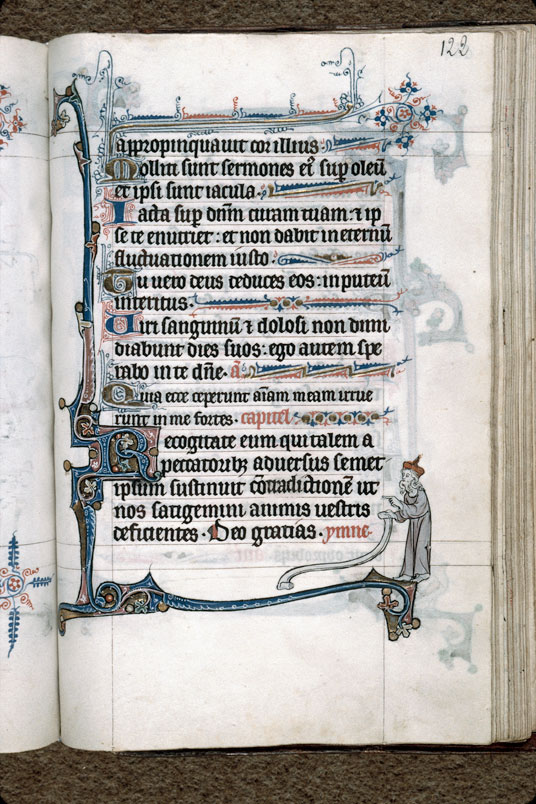 122
apropinquauit cor illius.
Molliti sunt sermones ei' sup oleū
et ipsi sunt iacula.
Iacta sup dn̄m curam tuam: ⁊ ip
se te enutriet: et non dabit in eternū
fluctuationem iusto.
Tu uero deus deduces eos: in puteū
interitus.
Uiri sanguinū ⁊ dolosi non dimi
diabunt dies suos: ego autem spe
rabo in te dn̄e. a
Quia ecce ceperunt aīam meam irrue
runt in me fortes. capitel
Recogitate eum qui talem a
peccatoribꝫ aduersus semet
ipsum sustinuit cōtradictionē ut
nos fatigemini animis uestris
deficientes. Deo gratias. ymne.